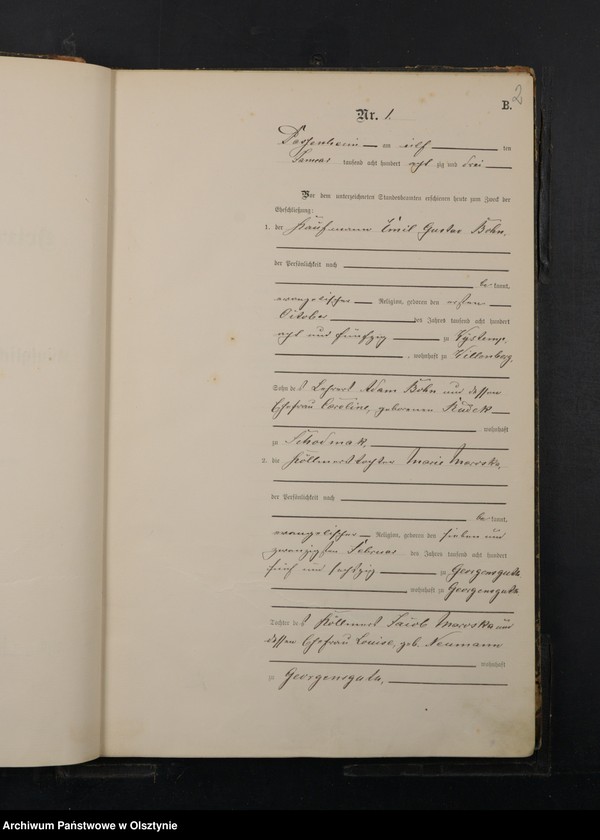 2
B.
Nr. 1.
Passenheim am eilf ten
Januar tausend acht hundert acht zig und drei
Vor dem unterzeichneten Standesbeamten erschienen heute zum Zweck der
Eheschließung:
1. der Kaufmann Emil Gustav Bohn,
der Persönlichkeit nach
be kannt,
evangelischer Religion, geboren den ersten
October des Jahres tausend acht hundert
acht und fünfzig zu
, wohnhaft zu Willenberg,
Sohn des Lehrers Adam Bohn und dessen
Ehefrau Caroline, geborenen
wohnhaft
zu
2. die Köllmerstochter Marie
der Persönlichkeit nach
be kannt,
evangelischer Religion, geboren den sieben und
zwanzigsten Februar des Jahres tausend acht hundert
fünf und sechszig zu Georgensguth,
wohnhaft zu Georgensguth
Tochter des Köllmers Jacob und
dessen Ehefrau Louise, geb. Neumann
wohnhaft
zu Georgensguth,
Archiwum Państwowe w Olsztynie